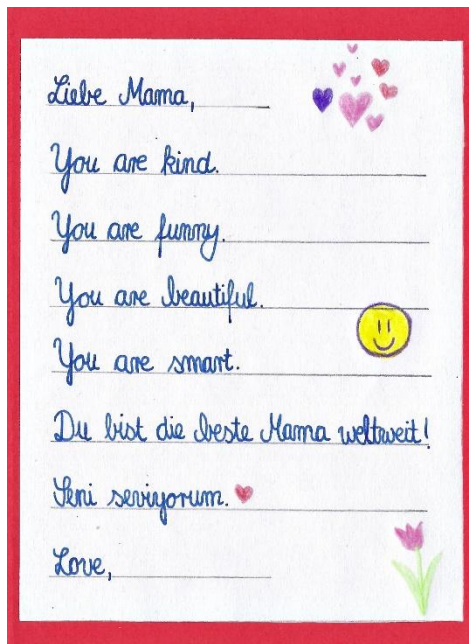 Liebe Mama,
You are kind.
You are funny.
You are beautiful.
You are smart.
Du bist die beste Mama weltweit!
Seni seviyorum.
Love,